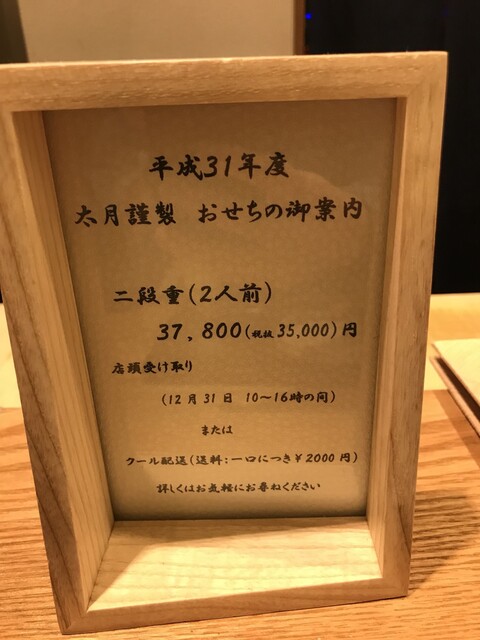 平成31年度
太月謹製 おせちの御案内
二段重(2人前)
37,800(税抜 35,000)円
店頭受け取り
(12月31日 10～16時の間)
または
クール配送(送料:一口につき¥2000円)
詳しくはお気軽にお尋ねください